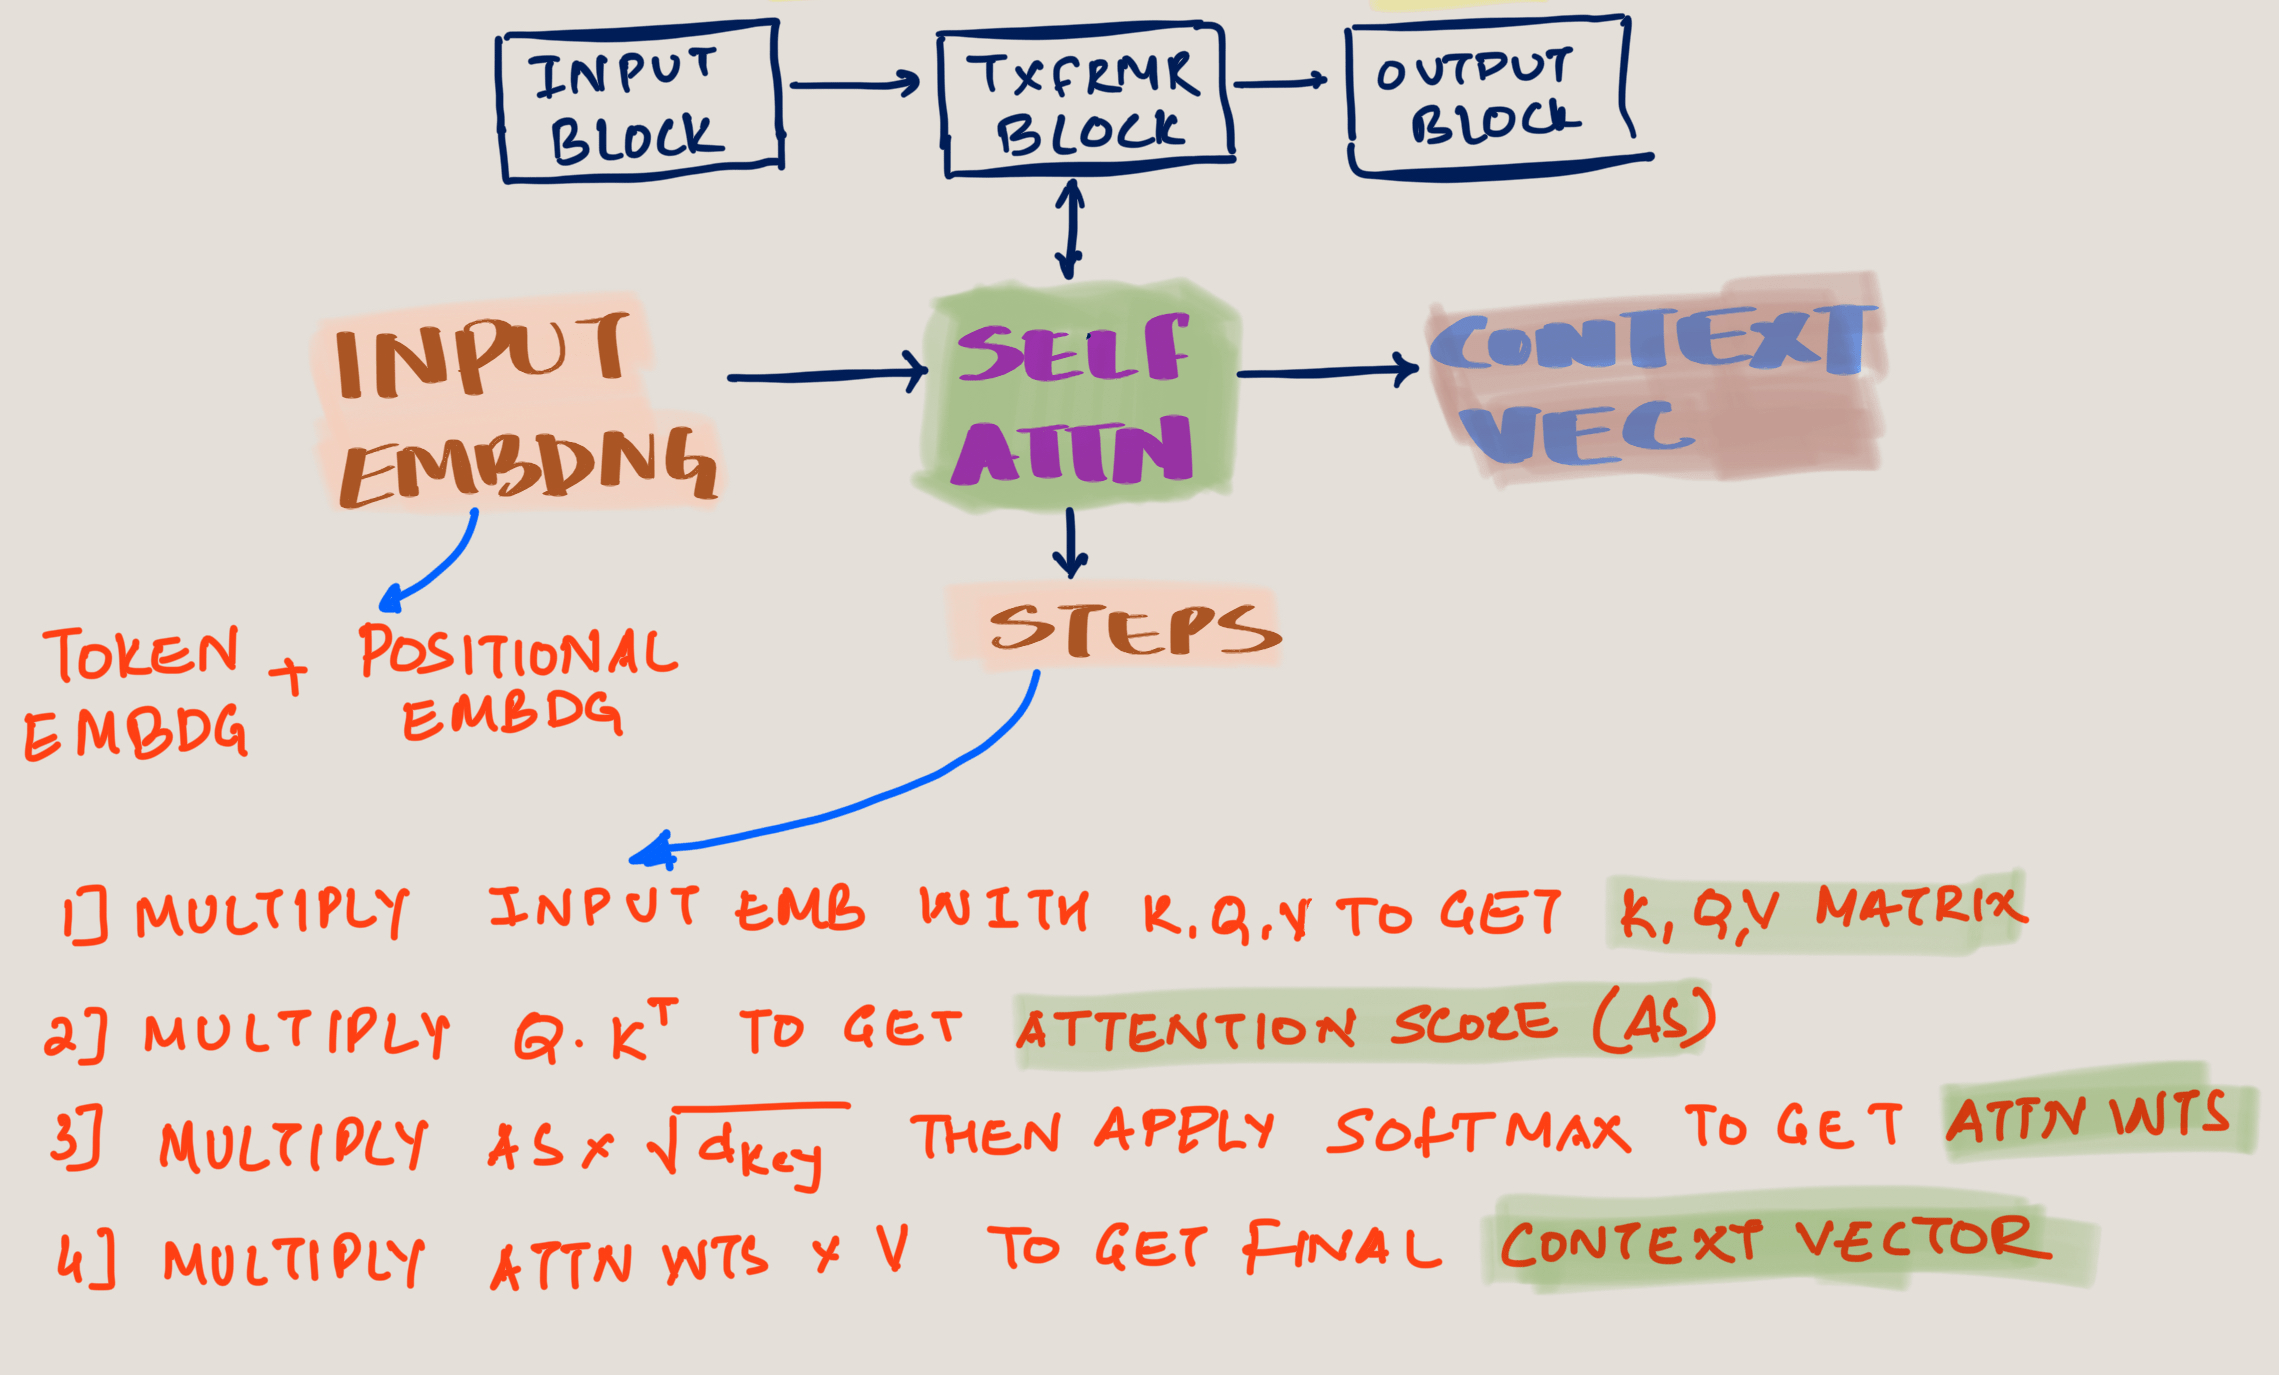 INPUT
BLOCK
TXFRMR
BLOCK
OUTPUT
BLOCK
INPUT
EMBDNG
SELF
ATTN
CONTEXT
VEC
STEPS
TOKEN
EMBDG
+
POSITIONAL
EMBDG
1] MULTIPLY INPUT EMB WITH K,Q,V TO GET K,Q,V MATRIX
2] MULTIPLY Q·Kᵀ TO GET ATTENTION SCORE (AS)
3] MULTIPLY AS × √dkey THEN APPLY SOFTMAX TO GET ATTN WTS
4] MULTIPLY ATTN WTS × V TO GET FINAL CONTEXT VECTOR